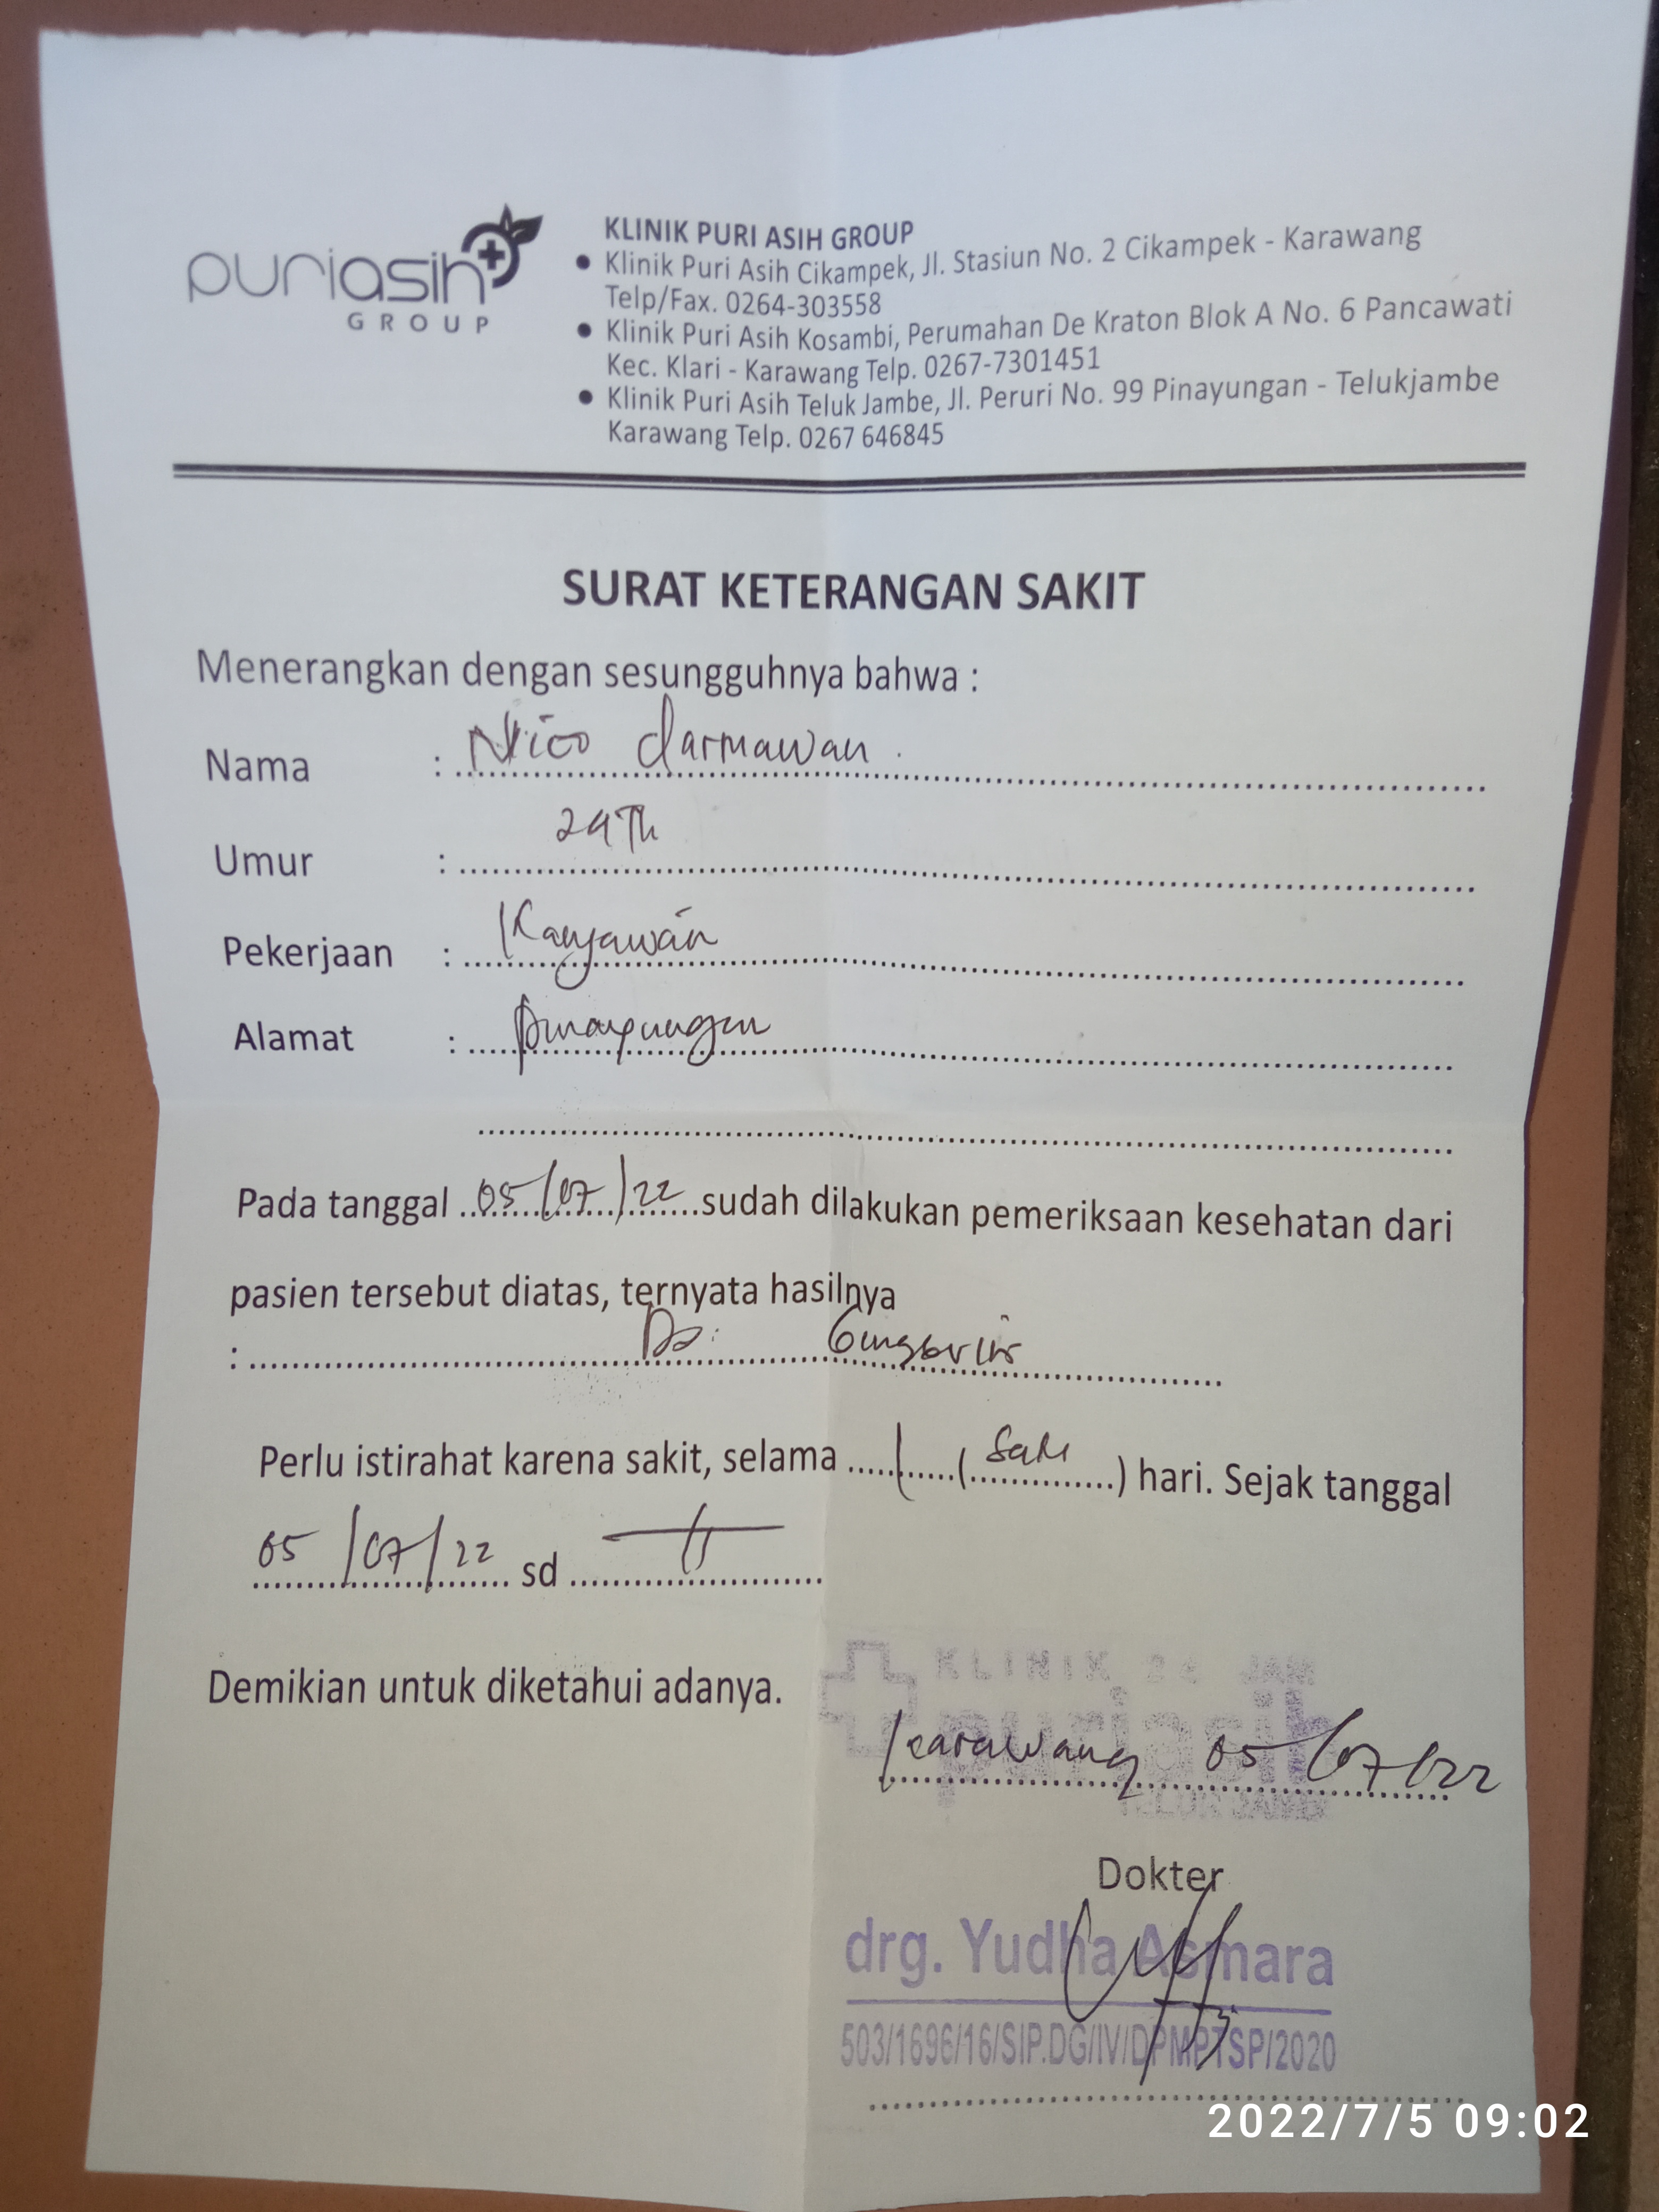 puriasih
GROUP
KLINIK PURI ASIH GROUP
• Klinik Puri Asih Cikampek, Jl. Stasiun No. 2 Cikampek - Karawang
Telp/Fax. 0264-303558
• Klinik Puri Asih Kosambi, Perumahan De Kraton Blok A No. 6 Pancawati
Kec. Klari - Karawang Telp. 0267-7301451
• Klinik Puri Asih Teluk Jambe, Jl. Peruri No. 99 Pinayungan - Telukjambe
Karawang Telp. 0267 646845
SURAT KETERANGAN SAKIT
Menerangkan dengan sesungguhnya bahwa :
Nama : Nico darmawan
Umur : Th
Pekerjaan : Karyawan
Alamat : Pinayungan
Pada tanggal 05/07/22 sudah dilakukan pemeriksaan kesehatan dari
pasien tersebut diatas, ternyata hasilnya
:
Perlu istirahat karena sakit, selama 1 (Satu) hari. Sejak tanggal
05/07/22 sd
Demikian untuk diketahui adanya.
KLINIK 24 JAM
puriasih
TELUK JAMBE
Karawang 05/07/22
Dokter
drg. Yudha Asmara
503/1696/16/SIP.DG/IV/DPMPTSP/2020
2022/7/5 09:02